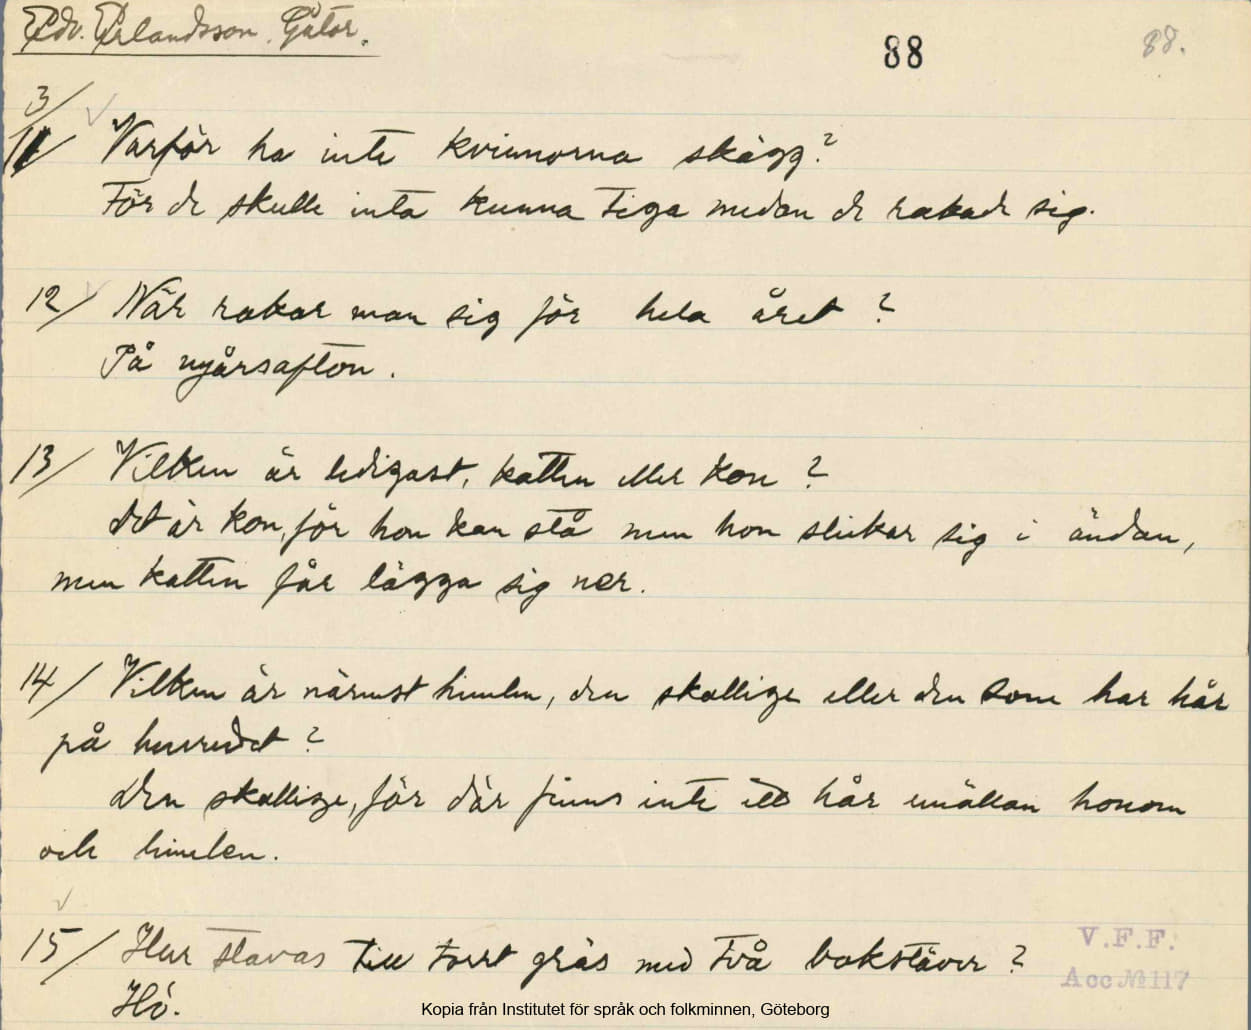 Edv. Erlandsson. Gåtor.
88
88.
3/
11/ Varför ha inte kvinnorna skägg?
För de skulle inta kunna tiga medan de rakade sig.
12/ När rakar man sig för hela året?
På nyårsafton.
13/ Vilken är ledigast, katten eller kon?
Det är kon, för hon kan stå men hon slickar sig i ändan,
men katten får lägga sig ner.
14/ Vilken är närmst himlen, den skallige eller den som har hår
på huvudet?
Den skallige, för där finns inte ett hår imällan honom
och himlen.
15/ Hur stavas till torrt gräs med två bokstäver?
Hö.
V.F.F.
Acc № 117
Kopia från Institutet för språk och folkminnen, Göteborg